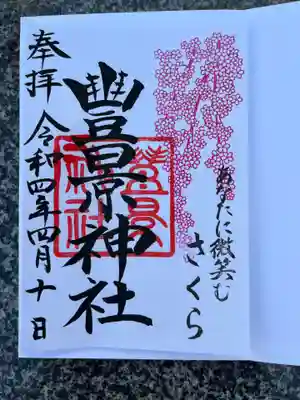 あなたに微笑む
さくら
豐景神社
奉拝 令和四年四月十日